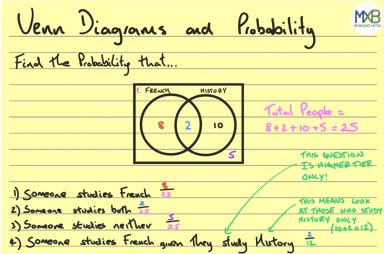 Venn Diagrams and Probability
MXB
Find the Probability that...
FRENCH HISTORY
8 2 10
5
Total People =
8+2+10+5=25
THIS QUESTION
IS HIGHER TIER
ONLY!
1) Someone studies French 8/25
2) Someone studies both 2/25
3) Someone studies neither 5/25
4) Someone studies French given they study History 2/12
THIS MEANS LOOK
AT THOSE WHO STUDY
HISTORY ONLY
(10+2=12)